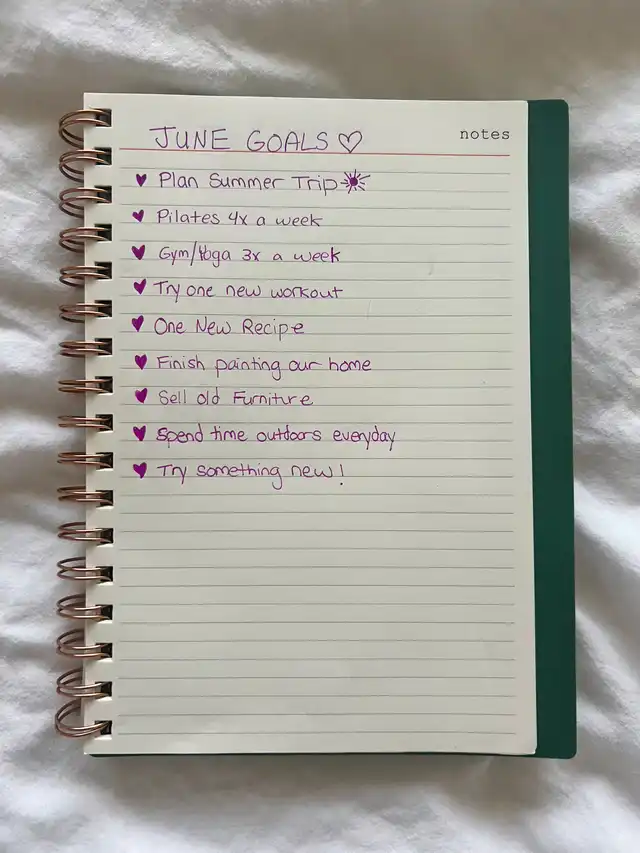 JUNE GOALS ♡
notes
♥ Plan Summer Trip☀
♥ Pilates 4x a week
♥ Gym/Yoga 3x a week
♥ Try one new workout
♥ One New Recipe
♥ Finish painting our home
♥ Sell old Furniture
♥ Spend time outdoors everyday
♥ Try something new!